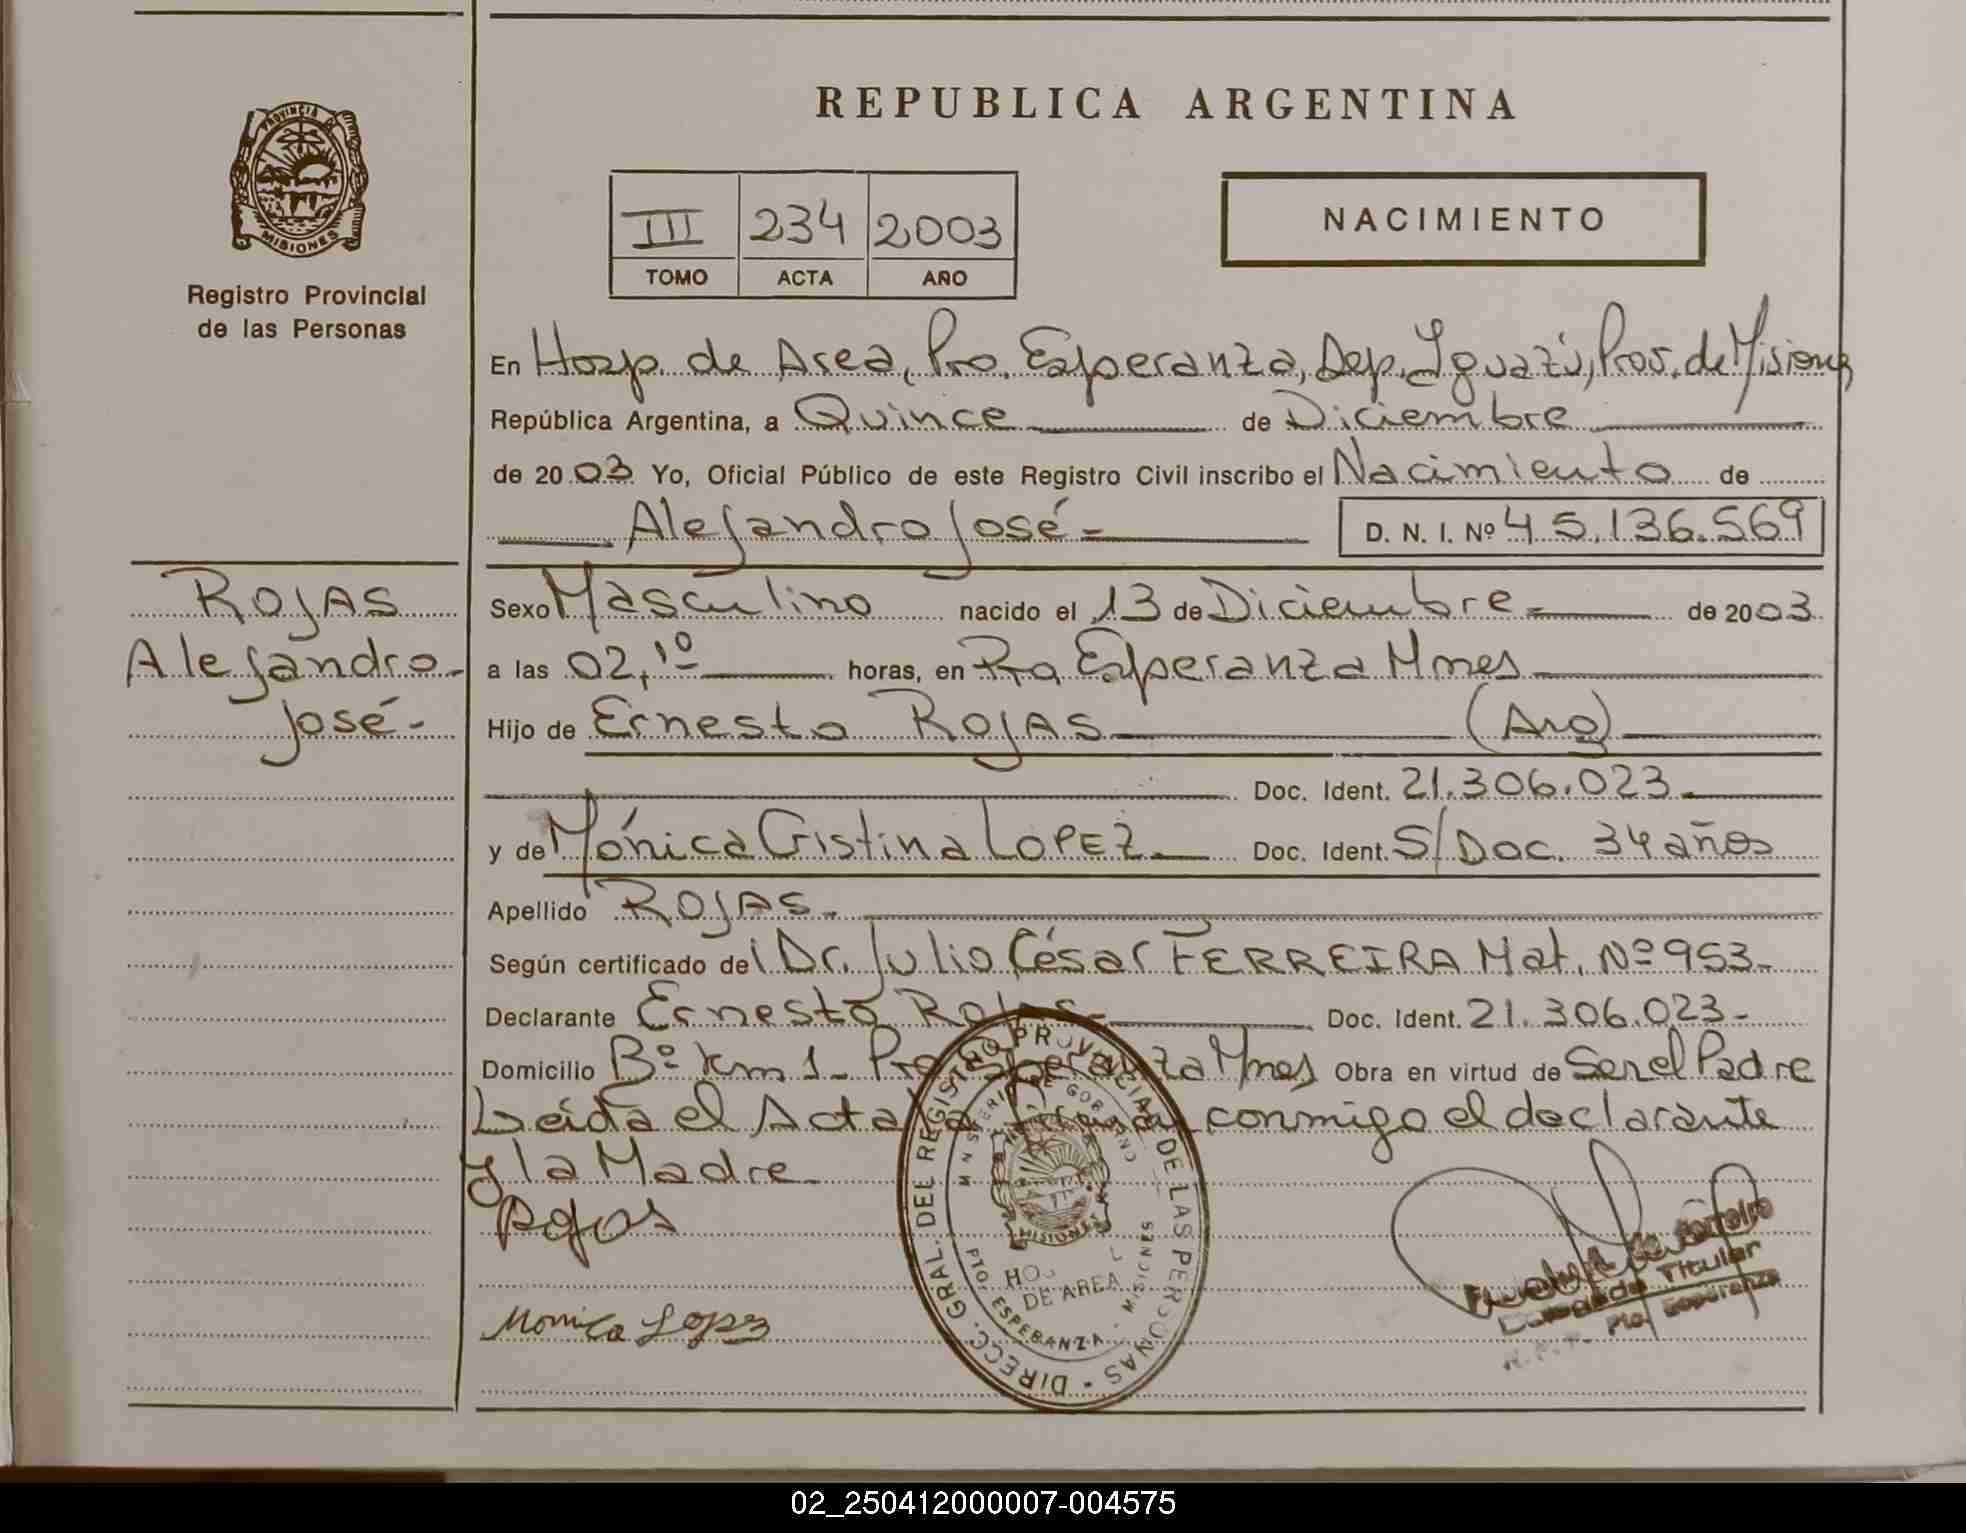 PROVINCIA DE
MISIONES
Registro Provincial
de las Personas
ROJAS
Alejandro
José-
REPUBLICA ARGENTINA
III 234 2003
TOMO ACTA AÑO
NACIMIENTO
En Hosp. de Area, Pto. Esperanza, Dep. Iguazú, Prov. de Misiones
República Argentina, a Quince de Diciembre
de 2003 Yo, Oficial Público de este Registro Civil inscribo el Nacimiento de
Alejandro José D. N. I. Nº 45.136.569
Sexo Masculino nacido el 13 de Diciembre de 2003
a las 02,10 horas, en Pto Esperanza Mnes
Hijo de Ernesto ROJAS (Arg)
Doc. Ident. 21.306.023
y de Mónica Cristina LOPEZ Doc. Ident. S/Doc. 34 años
Apellido ROJAS.
Según certificado del Dr. Julio César FERREIRA Mat. Nº 953-
Declarante Ernesto Rojas Doc. Ident. 21.306.023-
Domicilio Bº km 1- Pto Esperanza Mnes Obra en virtud de Ser el Padre
Leída el Acta la firman conmigo el declarante
y la Madre
Rojas
Monica Lopez
DIRECC. GRAL. DEL REGISTRO PROVINCIAL DE LAS PERSONAS
MINISTERIO DE GOBIERNO
MISIONES
DE AREA
PTO. ESPERANZA - MISIONES
Titular
Pto. Esperanza
02_250412000007-004575